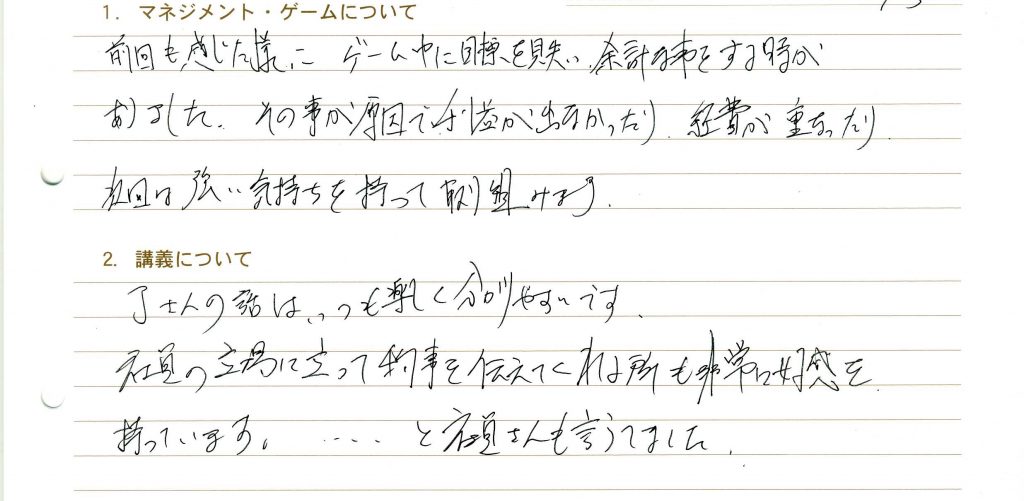 1. マネジメント・ゲームについて
前回も感じた様に ゲーム中に目標を見失い、余計な事をする時が
ありました。その事が原因で利益が出なかったり、経費が重なったり
次回は強い気持ちを持って取り組みます。
2. 講義について
さんの話は、いつも楽しく分かりやすいです。
社員の立場に立って物事を伝えてくれる所も非常に好感を
持っています。 ‥‥ と社員さんも言ってました。